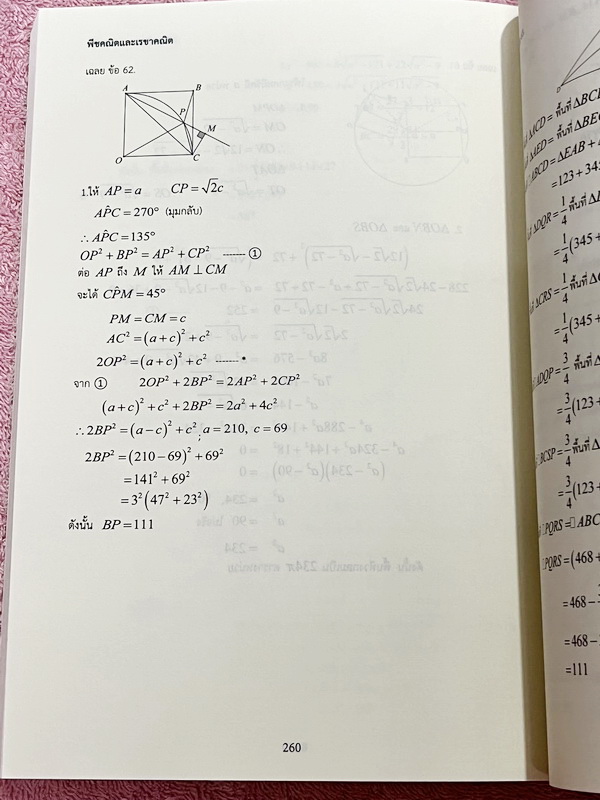 พีชคณิตและเรขาคณิต
เฉลย ข้อ 62.
A B
P
M
O C
1.ให้ AP = a CP = √2c
AP̂C = 270° (มุมกลับ)
∴ AP̂C = 135°
OP² + BP² = AP² + CP² ------- ①
ต่อ AP ถึง M ให้ AM ⊥ CM
จะได้ CP̂M = 45°
PM = CM = c
AC² = (a + c)² + c²
2OP² = (a + c)² + c² ------- *
จาก ① 2OP² + 2BP² = 2AP² + 2CP²
(a + c)² + c² + 2BP² = 2a² + 4c²
∴ 2BP² = (a − c)² + c² ; a = 210, c = 69
2BP² = (210 − 69)² + 69²
= 141² + 69²
= 3²(47² + 23²)
ดังนั้น BP = 111
260
D
ΔACD = พื้นที่ ΔBC
ΔAED = พื้นที่ ΔBE
ABCD = ΔEAB +
= 123 + 345
ΔDQR = 1/4 พื้นที่
= 1/4 (345 +
ΔCRS = 1/4 พื้นที่
= 1/4 (345 +
ADQP = 3/4 พื้นที่
= 3/4 (123 +
BCSP = 3/4 พื้นที่
= 3/4 (123 +
PQRS = ABC
PQRS = (468 +
= 468 −
= 468 −
= 111